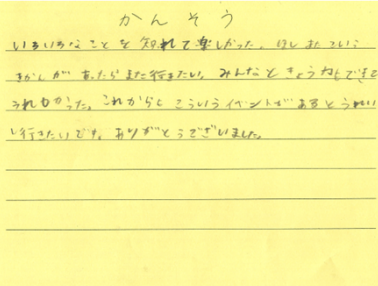 かんそう
いろいろなことを知れて楽しかった。
きかいがあったらまた行きたい。みんなときょう
これからもこういうイベントがあるとうれしい
行きたいです。ありがとうございました。